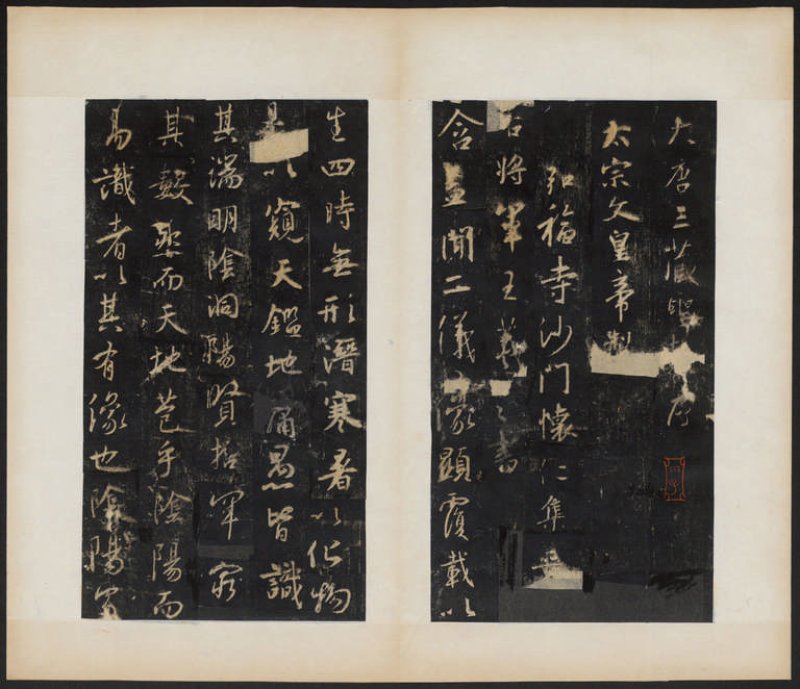 大唐三藏聖教序
太宗文皇帝製
弘福寺沙門懷仁集晉
右將軍王羲之書
含蓋聞二儀有象顯覆載以
生四時無形潛寒暑以化物
是以窺天鑑地庸愚皆識
其端明陰洞陽賢哲罕窮
其數然而天地苞乎陰陽而
易識者以其有像也陰陽處